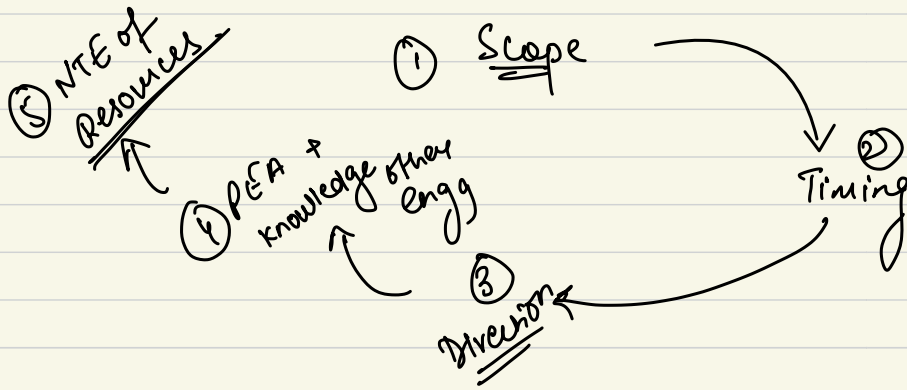 ① Scope
② Timing
③ Direction
④ PEA +
knowledge other
engg
⑤ NTE of
Resources